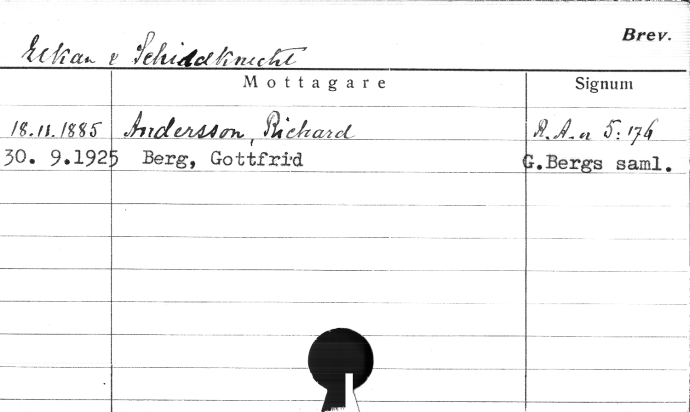 Brev.
Ekan & Schiddknecht
Mottagare Signum
18.11.1885 Andersson, Richard R.A.a 5:176
30. 9.1925 Berg, Gottfrid G.Bergs saml.